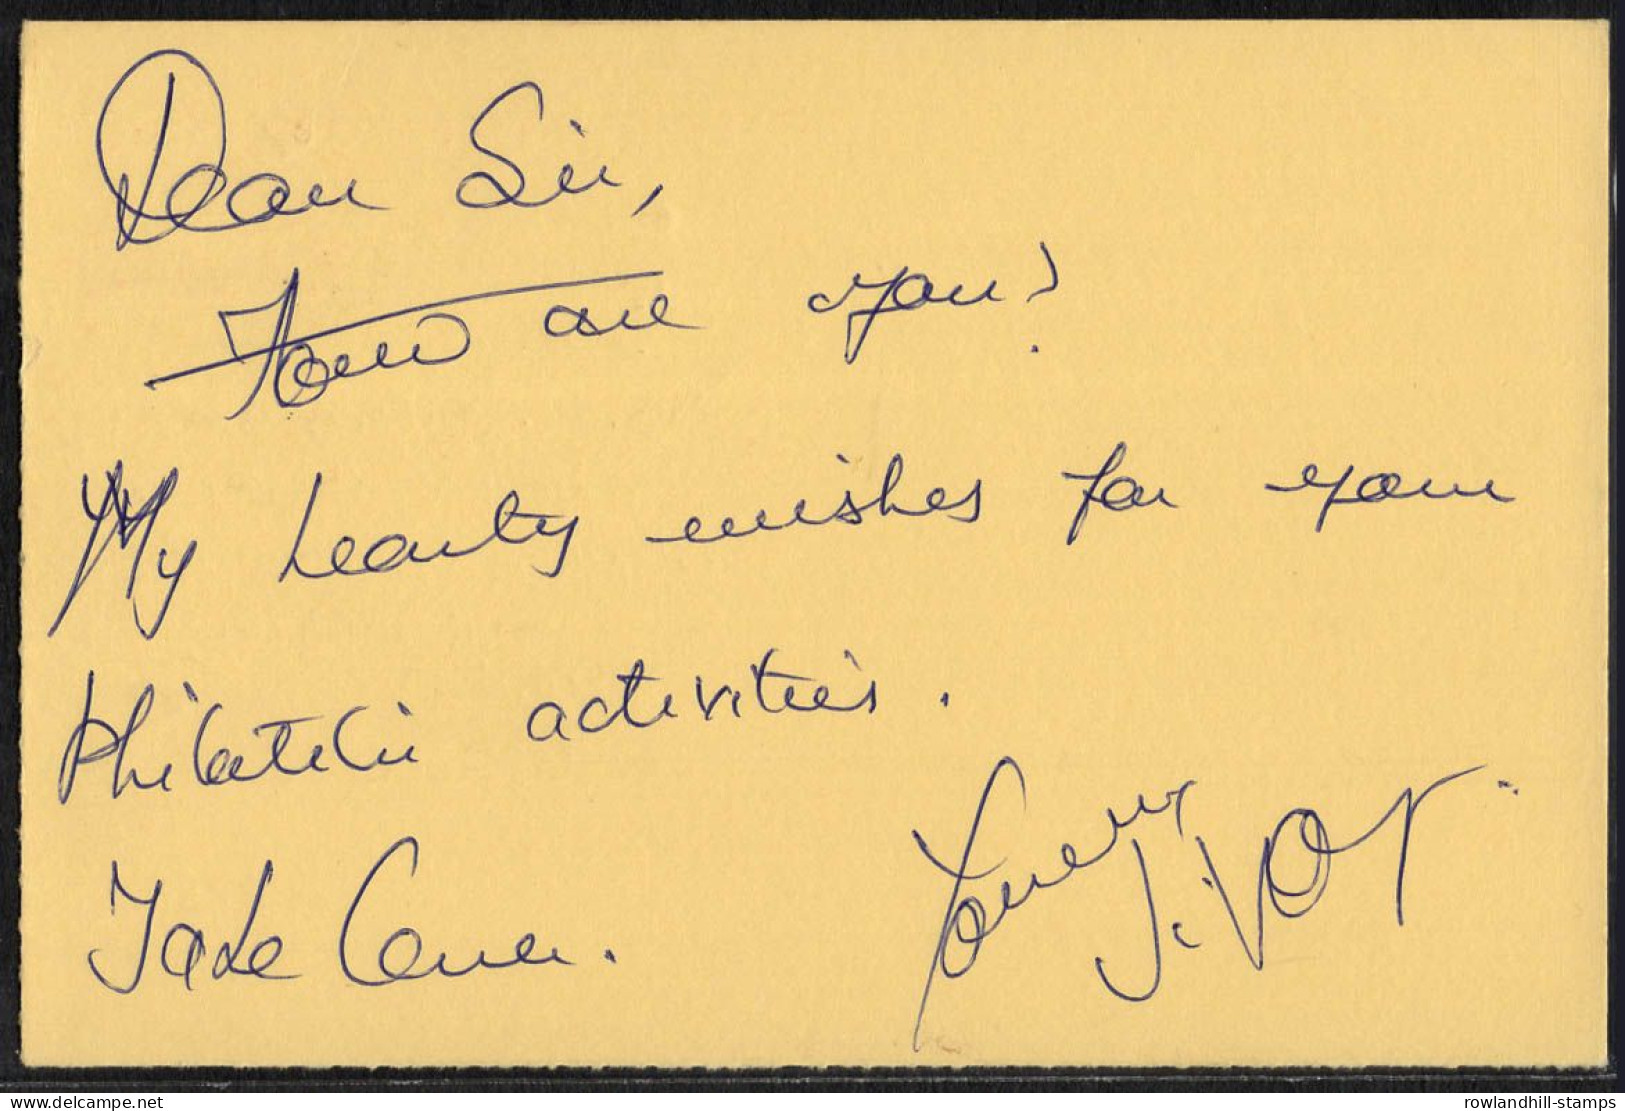 Dear Sir,
How are you?
My hearty wishes for your
Philatelic activities.
Take Care.
Yours
J. VOT
www.delcampe.net
rowlandhill-stamps